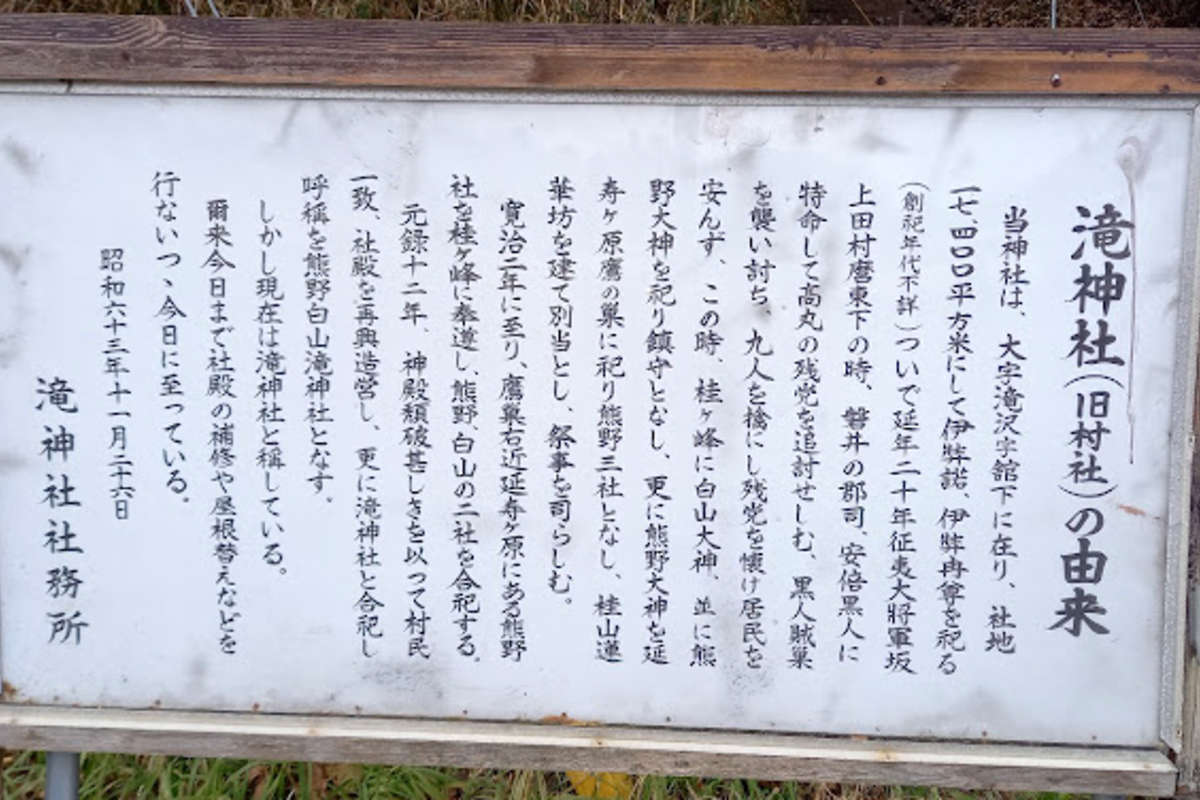 滝神社(旧村社)の由来
当神社は、大字滝沢字館下に在り、社地
一七、四〇〇平方米にして伊弉諾、伊弉冉尊を祀る
(創祀年代不詳)ついで延年二十年征夷大將軍坂
上田村麿東下の時、磐井の郡司、安倍黒人に
特命して高丸の残党を追討せしむ、黒人賊巣
を襲い討ち、九人を擒にし残党を懐け居民を
安んず、この時、桂ヶ峰に白山大神、並に熊
野大神を祀り鎮守となし、更に熊野大神を延
寿ヶ原鷹の巣に祀り熊野三社となし、桂山蓮
華坊を建て別当とし、祭事を司らしむ。
寛治二年に至り、鷹巣右近延寿ヶ原にある熊野
社を桂ヶ峰に奉遷し、熊野、白山の二社を合祀する。
元録十二年、神殿頽破甚しきを以つて村民
一致、社殿を再興造営し、更に滝神社と合祀し
呼称を熊野白山滝神社となす。
しかし現在は滝神社と称している。
爾来今日まで社殿の補修や屋根替えなどを
行ないつゝ今日に至っている。
昭和六十三年十一月二十六日
滝神社社務所